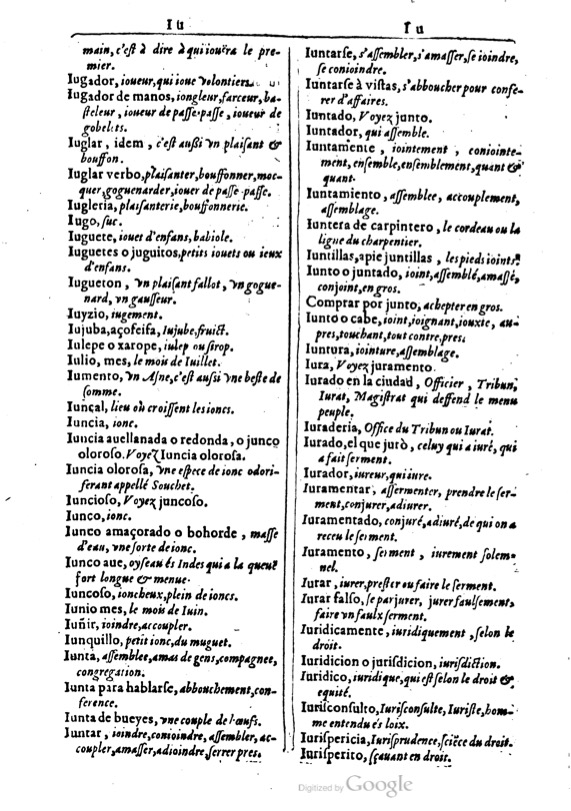 Iu
main, c'est à dire à qui iouëra le pre-
mier.
Iugador, ioueur, qui ioue volontiers.
Iugador de manos, iongleur, farceur, ba-
steleur, ioueur de passe-passe, ioueur de
gobelets.
Iuglar, idem, c'est außi vn plaisant &
bouffon.
Iuglar verbo, plaisanter, bouffonner, moc-
quer, goguenarder, iouer de passe-passe.
Iugleria, plaisanterie, bouffonnerie.
Iugo, suc.
Iuguete, iouet d'enfans, babiole.
Iuguetes o juguitos, petits iouets ou ieux
d'enfans.
Iugueton, vn plaisant fallot, vn gogue-
nard, vn gausseur.
Iuyzio, iugement.
Iujuba, açofeifa, Iujube, fruict.
Iulepe o xarope, iulep ou sirop.
Iulio, mes, le mois de Iuillet.
Iumento, vn Asne, c'est aussi vne beste de
somme.
Iunçal, lieu où croissent les ioncs.
Iuncia, ionc.
Iuncia auellanada o redonda, o junco
oloroso. Voyez Iuncia olorosa.
Iuncia olorosa, vne espece de ionc odori-
ferant appellé Souchet.
Iuncioso, Voyez juncoso.
Iunco, ionc.
Iunco amaçorado o bohorde, masse
d'eau, vne sorte de ionc.
Iunco aue, oyseau és Indes qui a la queuë
fort longue & menue.
Iuncoso, ioncheux, plein de ioncs.
Iunio mes, le mois de Iuin.
Iuñir, ioindre, accoupler.
Iunquillo, petit ionc, du muguet.
Iunta, assemblee, amas de gens, compagnee,
congregation.
Iunta para hablarse, abbouchement, con-
ference.
Iunta de bueyes, vne couple de bœufs.
Iuntar, ioindre, conioindre, assembler, ac-
coupler, amasser, adioindre, serrer pres.
Iu
Iuntarse, s'assembler, s'amasser, se ioindre,
se conioindre.
Iuntarse à vistas, s'abboucher pour confe-
rer d'affaires.
Iuntado, Voyez junto.
Iuntador, qui assemble.
Iuntamente, iointement, conioincte-
ment, ensemble, ensemblement, quant &
quant.
Iuntamiento, assemblee, accouplement,
assemblage.
Iuntera de carpintero, le cordeau ou la
ligne du charpentier.
Iuntillas, apie juntillas, les pieds ioints.
Iunto o juntado, ioint, assemblé, amassé,
conjoint, en gros.
Comprar por junto, achepter en gros.
Iunto o cabe, ioint, ioignant, iouxte, au-
pres, touchant, tout contre, pres.
Iuntura, iointure, assemblage.
Iura, Voyez juramento.
Iurado en la ciudad, Officier, Tribun,
Iurat, Magistrat qui deffend le menu
peuple.
Iuraderia, Office du Tribun ou Iurat.
Iurado, el que jurò, celuy qui a iuré, qui
a fait serment.
Iurador, iureur, qui iure.
Iuramentar, assermenter, prendre le ser-
ment, conjurer, adiurer.
Iuramentado, conjuré, adiuré, de qui on a
receu le serment.
Iuramento, serment, iurement solem-
nel.
Iurar, iurer, prester ou faire le serment.
Iurar falso, se parjurer, jurer faulsement,
faire vn faulx serment.
Iuridicamente, iuridiquement, selon le
droit.
Iuridicion o jurisdicion, iurisdiction.
Iuridico, iuridique, qui est selon le droit &
equité.
Iurisconsulto, Iurisconsulte, Iuriste, hom-
me entendu és loix.
Iurispericia, Iurisprudence, sciēce du droit.
Iurisperito, sçauant en droit.
Digitized by Google